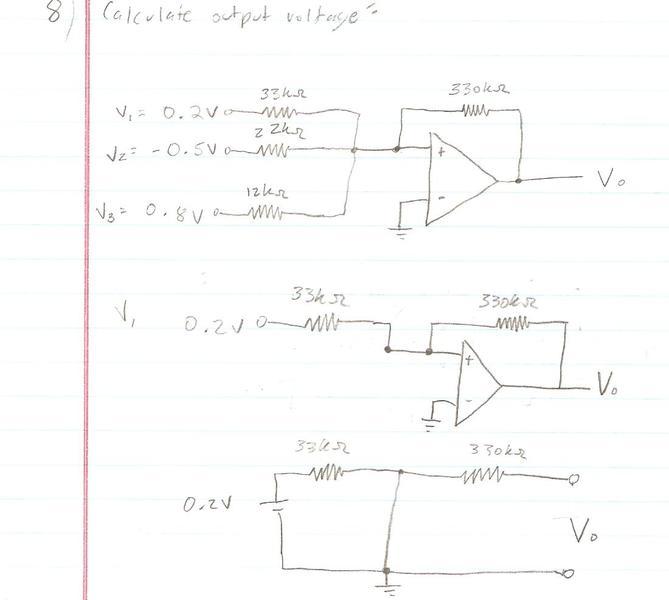 8) Calculate output voltage:
33kΩ 330kΩ
V1 = 0.2V
22kΩ
V2 = -0.5V +
Vo
12kΩ -
V3 = 0.8V
33kΩ 330kΩ
V1 0.2V
+
Vo
-
33kΩ 330kΩ
0.2V
Vo